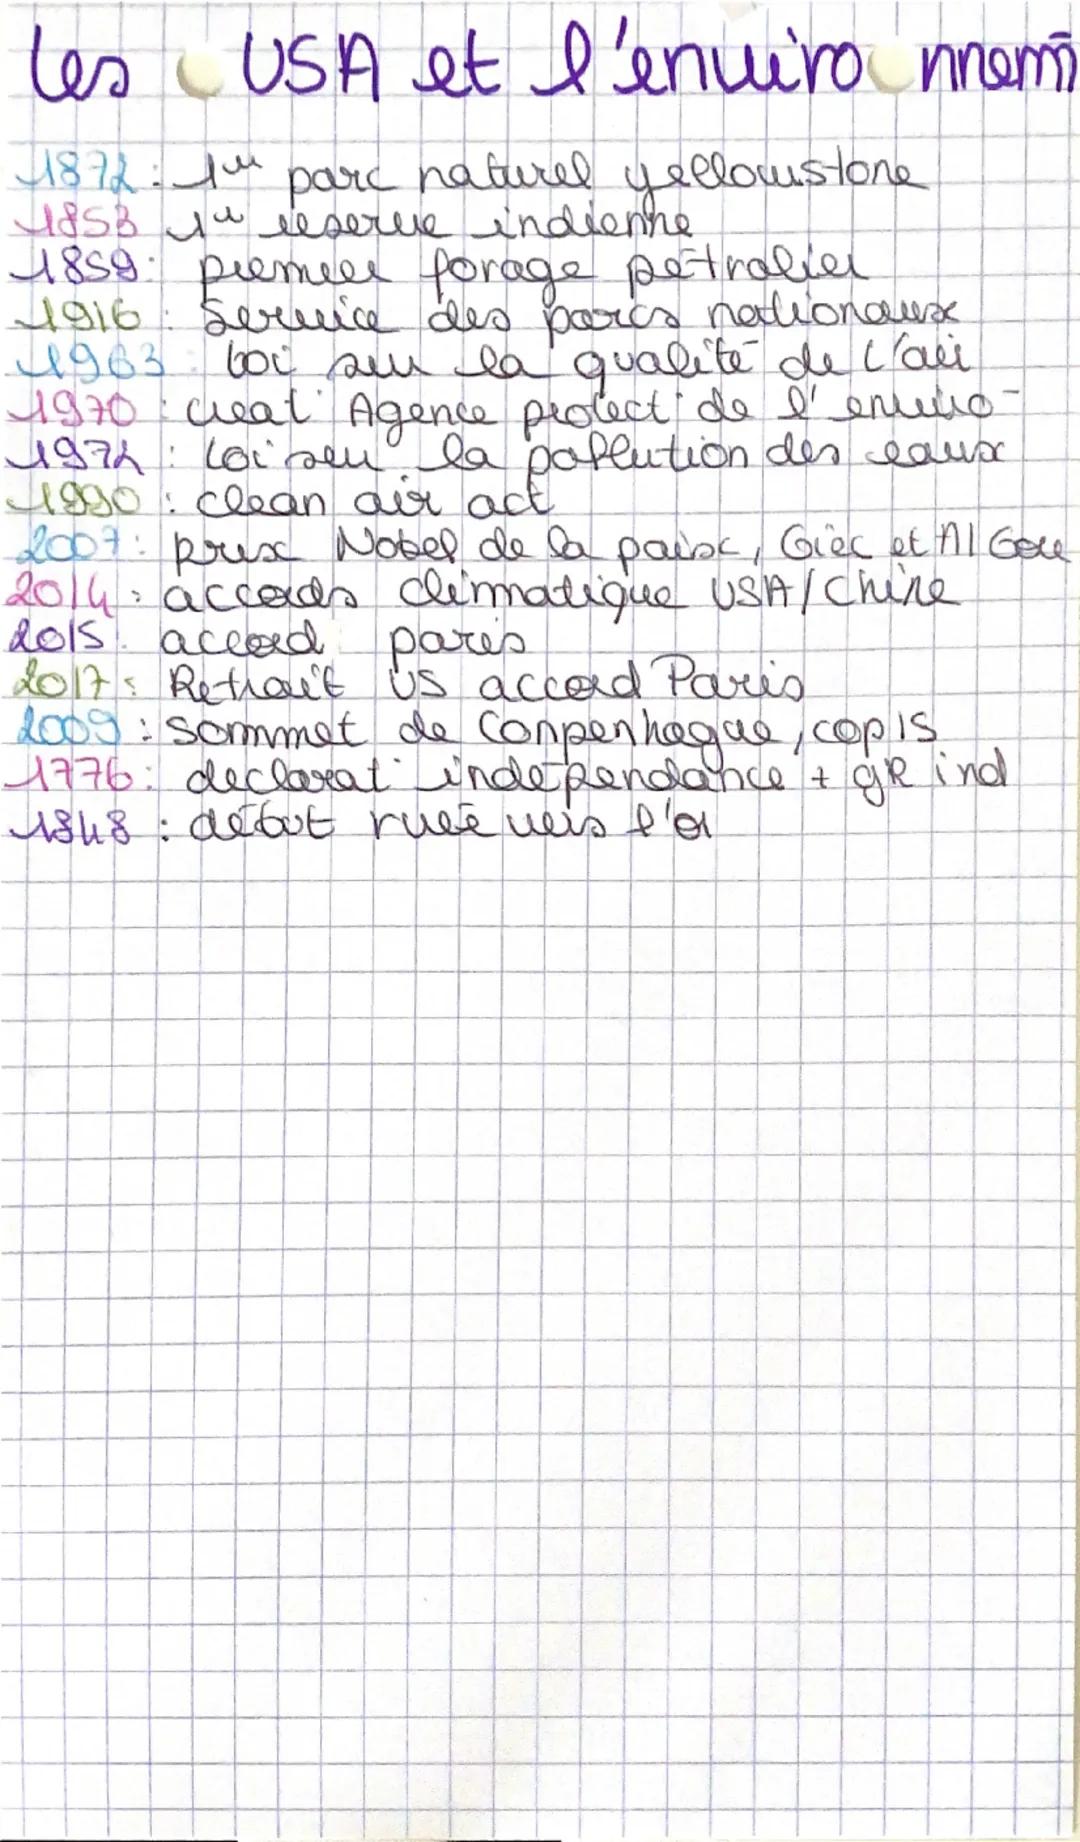 les USA et l'environnemt
1872 : 1er parc naturel yellowstone
1853 1er reserve indienne
1859 : premier forage pétrolier
1916 : Service des parcs nationaux
1963 : loi sur la qualité de l'air
1970 : creat° Agence protect° de l'enviro-
1972 : loi sur la pollution des eaux
1990 : clean air act
2007 : prix Nobel de la paix, Giec et Al Gore
2014 : accords climatique USA/Chine
2015 : accord paris
2017 : Retrait US accord Paris
2009 : sommet de Conpenhague, cop 15
1776 : declarat° indépendance + gR ind
1848 : début ruée vers l'or